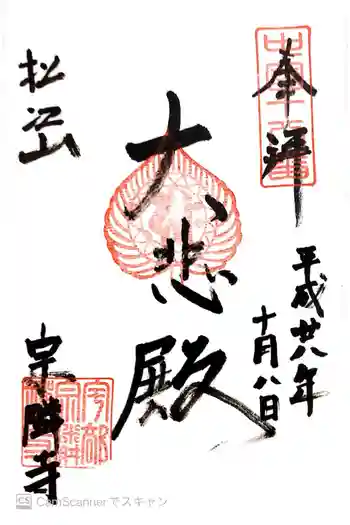 奉拝
平成廿八年
十月八日
大悲殿
松江山
宗隣寺
CS CamScannerでスキャン